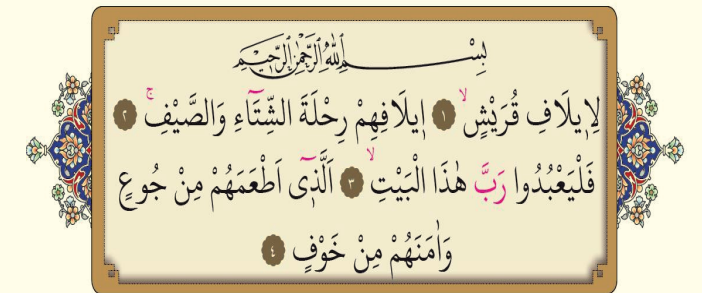 بِسْمِ اللّٰهِ الرَّحْمٰنِ الرَّحِيمِ
لِاِيلَافِ قُرَيْشٍۙ ﴿١﴾ اٖيلَافِهِمْ رِحْلَةَ الشِّتَٓاءِ وَالصَّيْفِۚ ﴿٢﴾
فَلْيَعْبُدُوا رَبَّ هٰذَا الْبَيْتِۙ ﴿٣﴾ اَلَّذٖٓى اَطْعَمَهُمْ مِنْ جُوعٍ
وَاٰمَنَهُمْ مِنْ خَوْفٍ ﴿٤﴾